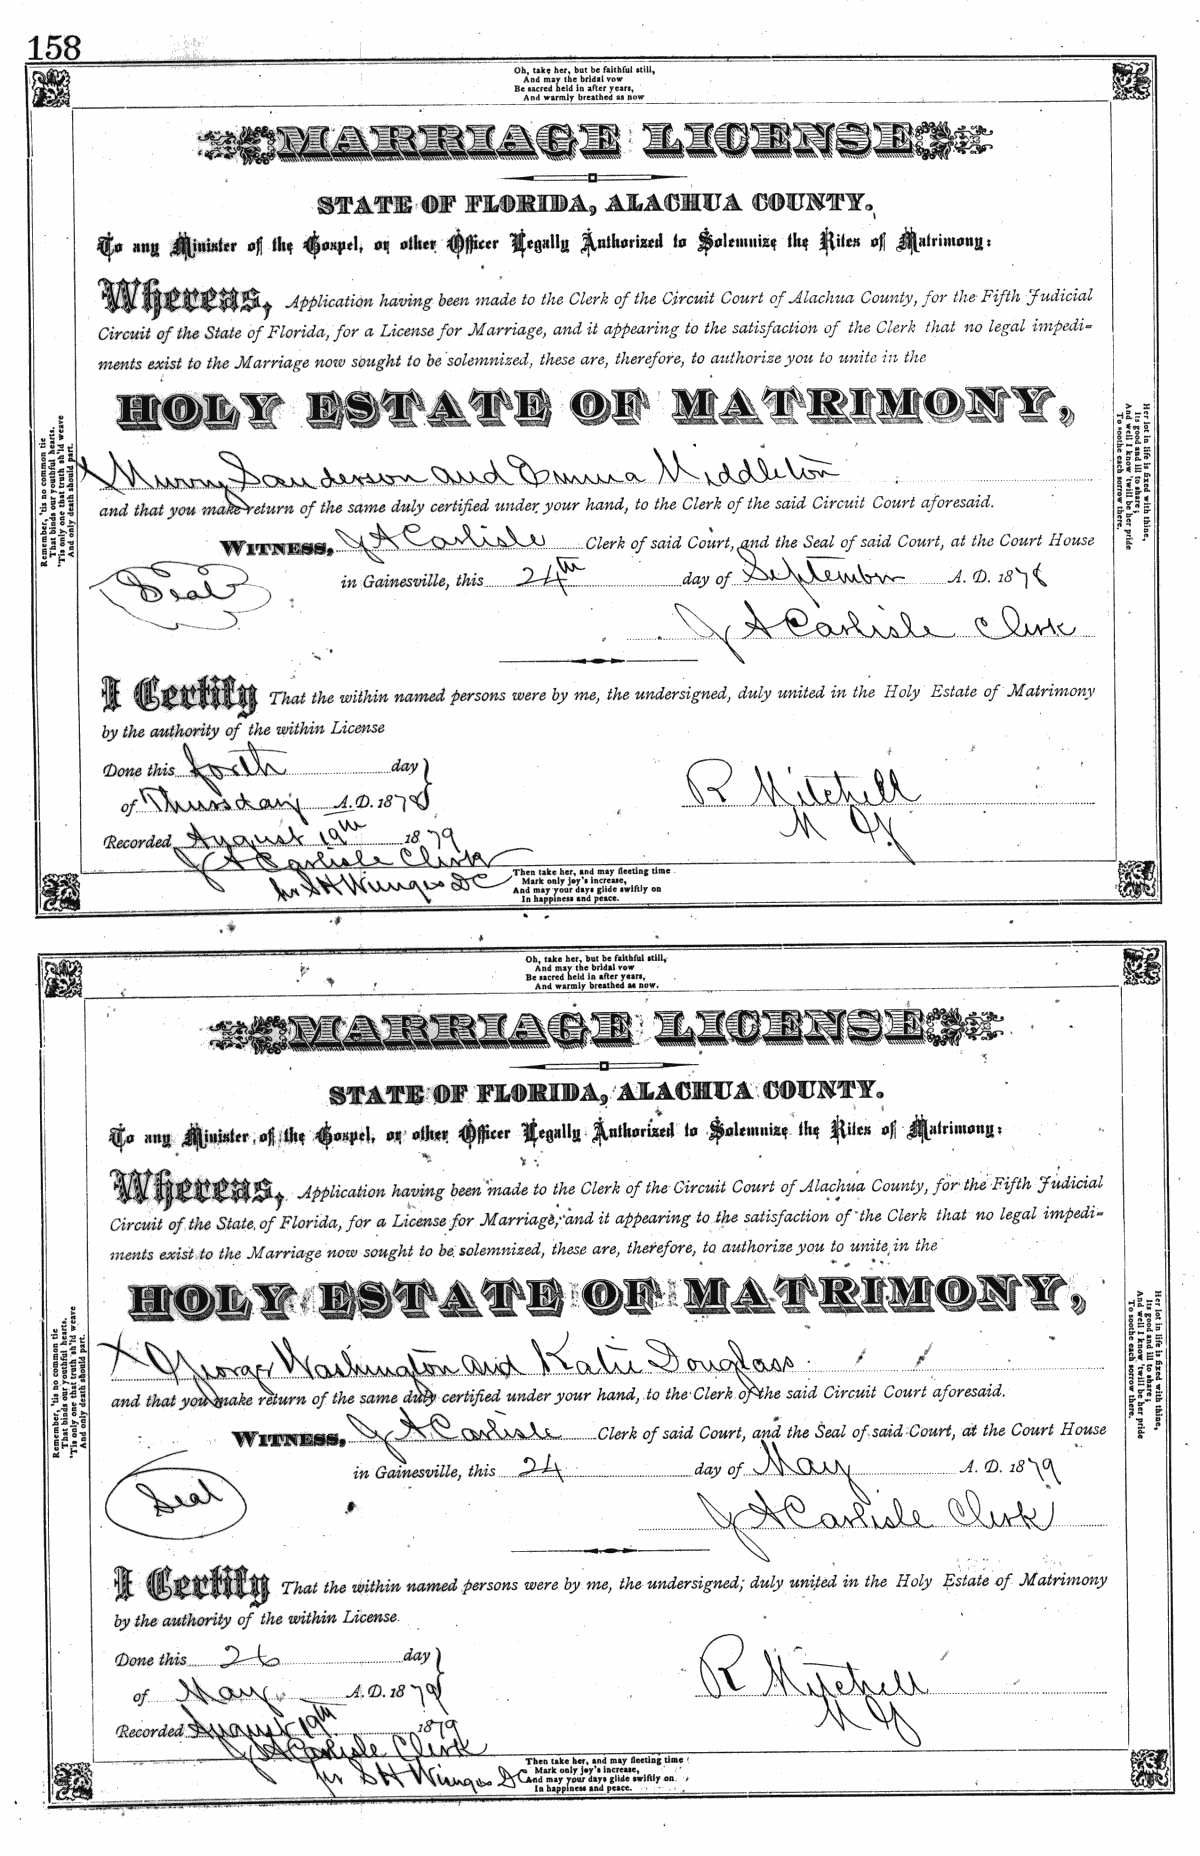 158
Oh, take her, but be faithful still,
And may the bridal vow
Be sacred held in after years,
And warmly breathed as now
MARRIAGE LICENSE
STATE OF FLORIDA, ALACHUA COUNTY.
To any Minister of the Gospel, or other Officer Legally Authorized to Solemnize the Rites of Matrimony:
Whereas, Application having been made to the Clerk of the Circuit Court of Alachua County, for the Fifth Judicial
Circuit of the State of Florida, for a License for Marriage, and it appearing to the satisfaction of the Clerk that no legal impedi-
ments exist to the Marriage now sought to be solemnized, these are, therefore, to authorize you to unite in the
HOLY ESTATE OF MATRIMONY,
Murry Sanderson and Emma Middleton
and that you make return of the same duly certified under your hand, to the Clerk of the said Circuit Court aforesaid.
WITNESS, J A Carlisle Clerk of said Court, and the Seal of said Court, at the Court House
Seal
in Gainesville, this 24th day of September A. D. 1878
J A Carlisle Clerk
I Certify That the within named persons were by me, the undersigned, duly united in the Holy Estate of Matrimony
by the authority of the within License
Done this forth day
of Thursday A.D. 1878
R Mitchell
M G
Recorded August 19th 1879
J A Carlisle Clerk
per S H Wienges DC
Then take her, and may fleeting time
Mark only joy's increase,
And may your days glide swiftly on
In happiness and peace.
Remember, 'tis no common tie
That binds our youthful hearts,
'Tis only one that truth sh'ld weave
And only death should part.
Her lot in life is fixed with thine,
Its good and ill to share;
And well I know 'twill be her pride
To soothe each sorrow there.
Oh, take her, but be faithful still,
And may the bridal vow
Be sacred held in after years,
And warmly breathed as now.
MARRIAGE LICENSE
STATE OF FLORIDA, ALACHUA COUNTY.
To any Minister of the Gospel, or other Officer Legally Authorized to Solemnize the Rites of Matrimony:
Whereas, Application having been made to the Clerk of the Circuit Court of Alachua County, for the Fifth Judicial
Circuit of the State of Florida, for a License for Marriage, and it appearing to the satisfaction of the Clerk that no legal impedi-
ments exist to the Marriage now sought to be solemnized, these are, therefore, to authorize you to unite in the
HOLY ESTATE OF MATRIMONY,
X George Washington and Katie Douglass
and that you make return of the same duly certified under your hand, to the Clerk of the said Circuit Court aforesaid.
WITNESS, J A Carlisle Clerk of said Court, and the Seal of said Court, at the Court House
Seal
in Gainesville, this 24 day of May A. D. 1879
J A Carlisle Clerk
I Certify That the within named persons were by me, the undersigned, duly united in the Holy Estate of Matrimony
by the authority of the within License.
Done this 26 day
of May A.D. 1879
R Mitchell
M G
Recorded August 19th 1879
J A Carlisle Clerk
per S H Wienges DC
Then take her, and may fleeting time
Mark only joy's increase,
And may your days glide swiftly on
In happiness and peace.
Remember, 'tis no common tie
That binds our youthful hearts,
'Tis only one that truth sh'ld weave
And only death should part.
Her lot in life is fixed with thine,
Its good and ill to share;
And well I know 'twill be her pride
To soothe each sorrow there.